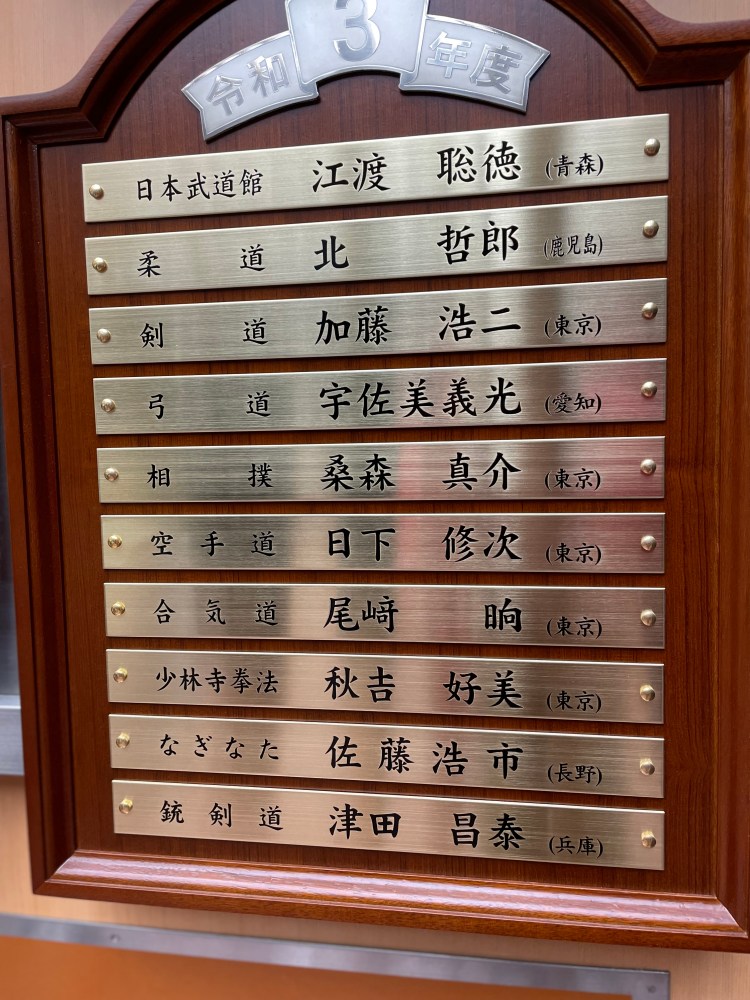 令和3年度
日本武道館 江渡 聡徳 (青森)
柔道 北 哲郎 (鹿児島)
剣道 加藤 浩二 (東京)
弓道 宇佐美義光 (愛知)
相撲 桑森 真介 (東京)
空手道 日下 修次 (東京)
合気道 尾﨑 晌 (東京)
少林寺拳法 秋吉 好美 (東京)
なぎなた 佐藤浩市 (長野)
銃剣道 津田 昌泰 (兵庫)